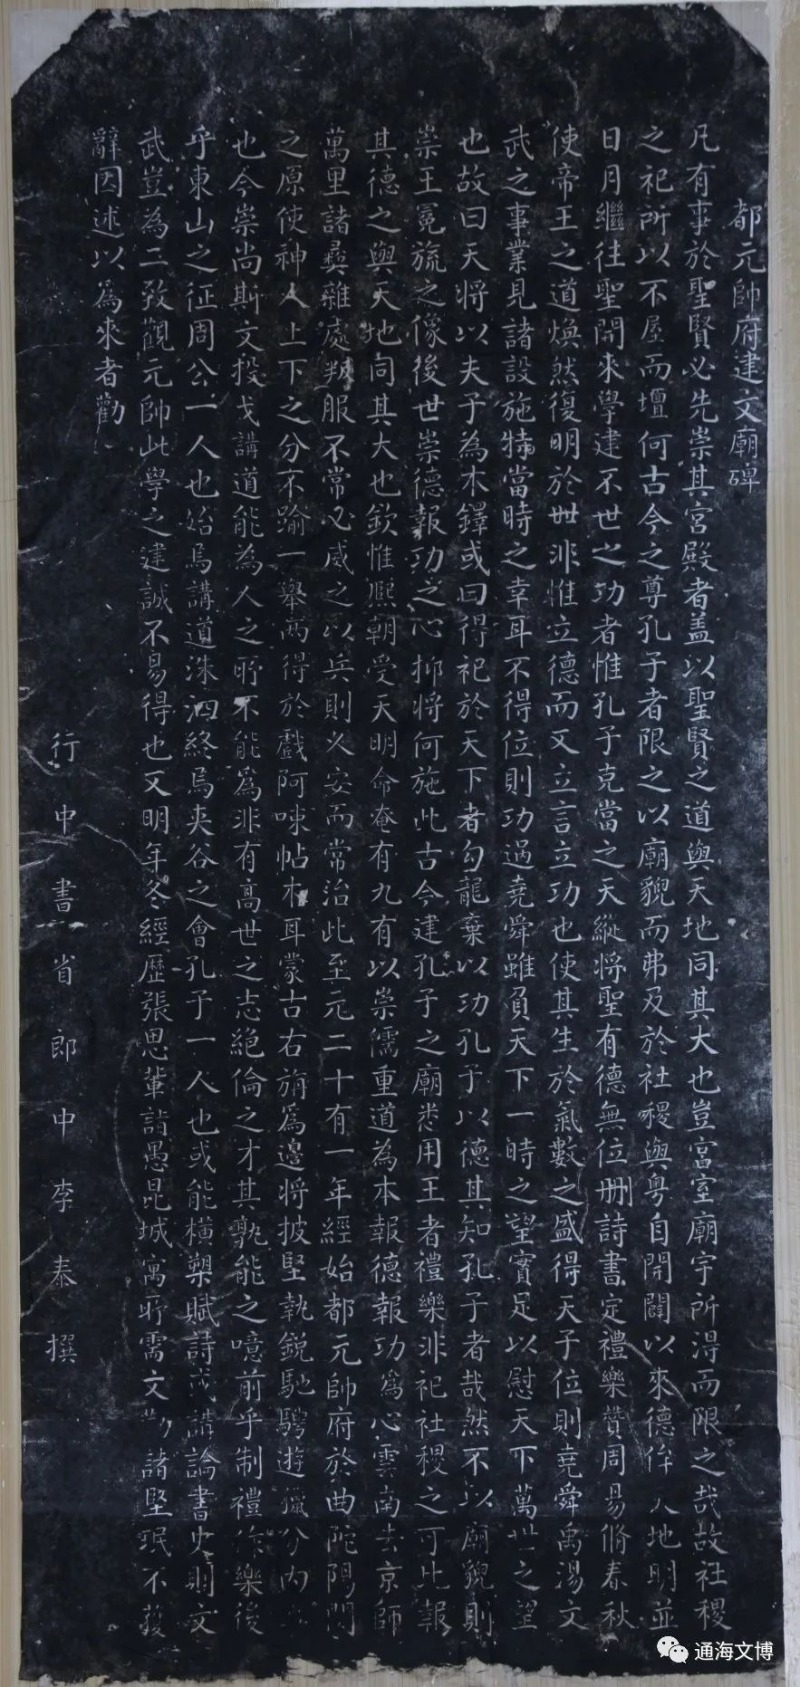 都元帥府建文廟碑
凡有事於聖賢必先崇其宮殿者盖以聖賢之道與天地同其大也豈富室廟宇所淂而限之哉故社稷
之祀所以不屋而壇何古今之尊孔子者限之以廟貌而弗及於社稷與粤自開闢以來德侔天地明並
日月繼往聖開來學建不世之功者惟孔子克當之天縱將聖有德無位刪詩書定禮樂贊周易脩春秋
使帝王之道煥然復明於世非惟立德而又立言立功也使其生於氣數之盛得天子位則堯舜禹湯文
武之事業見諸設施特當時之幸耳不得位則功過堯舜雖負天下一時之望實足以慰天下萬世之望
也故曰天將以夫子為木鐸或曰得祀於天下者勾龍棄以功孔子以德其知孔子者哉然不以廟貌則
崇王冕旒之像後世崇德報功之心抑將何施此古今建孔子之廟悉用王者禮樂非祀社稷之可比報
其德之與天地同其大也欽惟熙朝受天明命奄有九有以崇儒重道為本報德報功為心雲南去京師
萬里諸彝雜處叛服不常必威之以兵則乂安而常治此至元二十有一年經始都元帥府於曲陀陽門
之原使神人上下之分不踰一舉两得於戲阿喇帖木耳蒙古右旃為邊將披堅執銳馳騁遊獵分內
也今崇尚斯文投戈講道能為人之所不能為非有高世之志絕倫之才其孰能之噫前乎制禮作樂後
乎東山之征周公一人也始焉講道洙泗終焉夾谷之會孔子一人也或能橫槊賦詩或講論書史則文
武豈為二致觀元帥此學之建誠不易得也又明年冬經歷張思輩詣愚昆城寓所需文勒諸堅珉不獲
辭因述以為來者勸
行中書省郎中李泰撰
通海文博